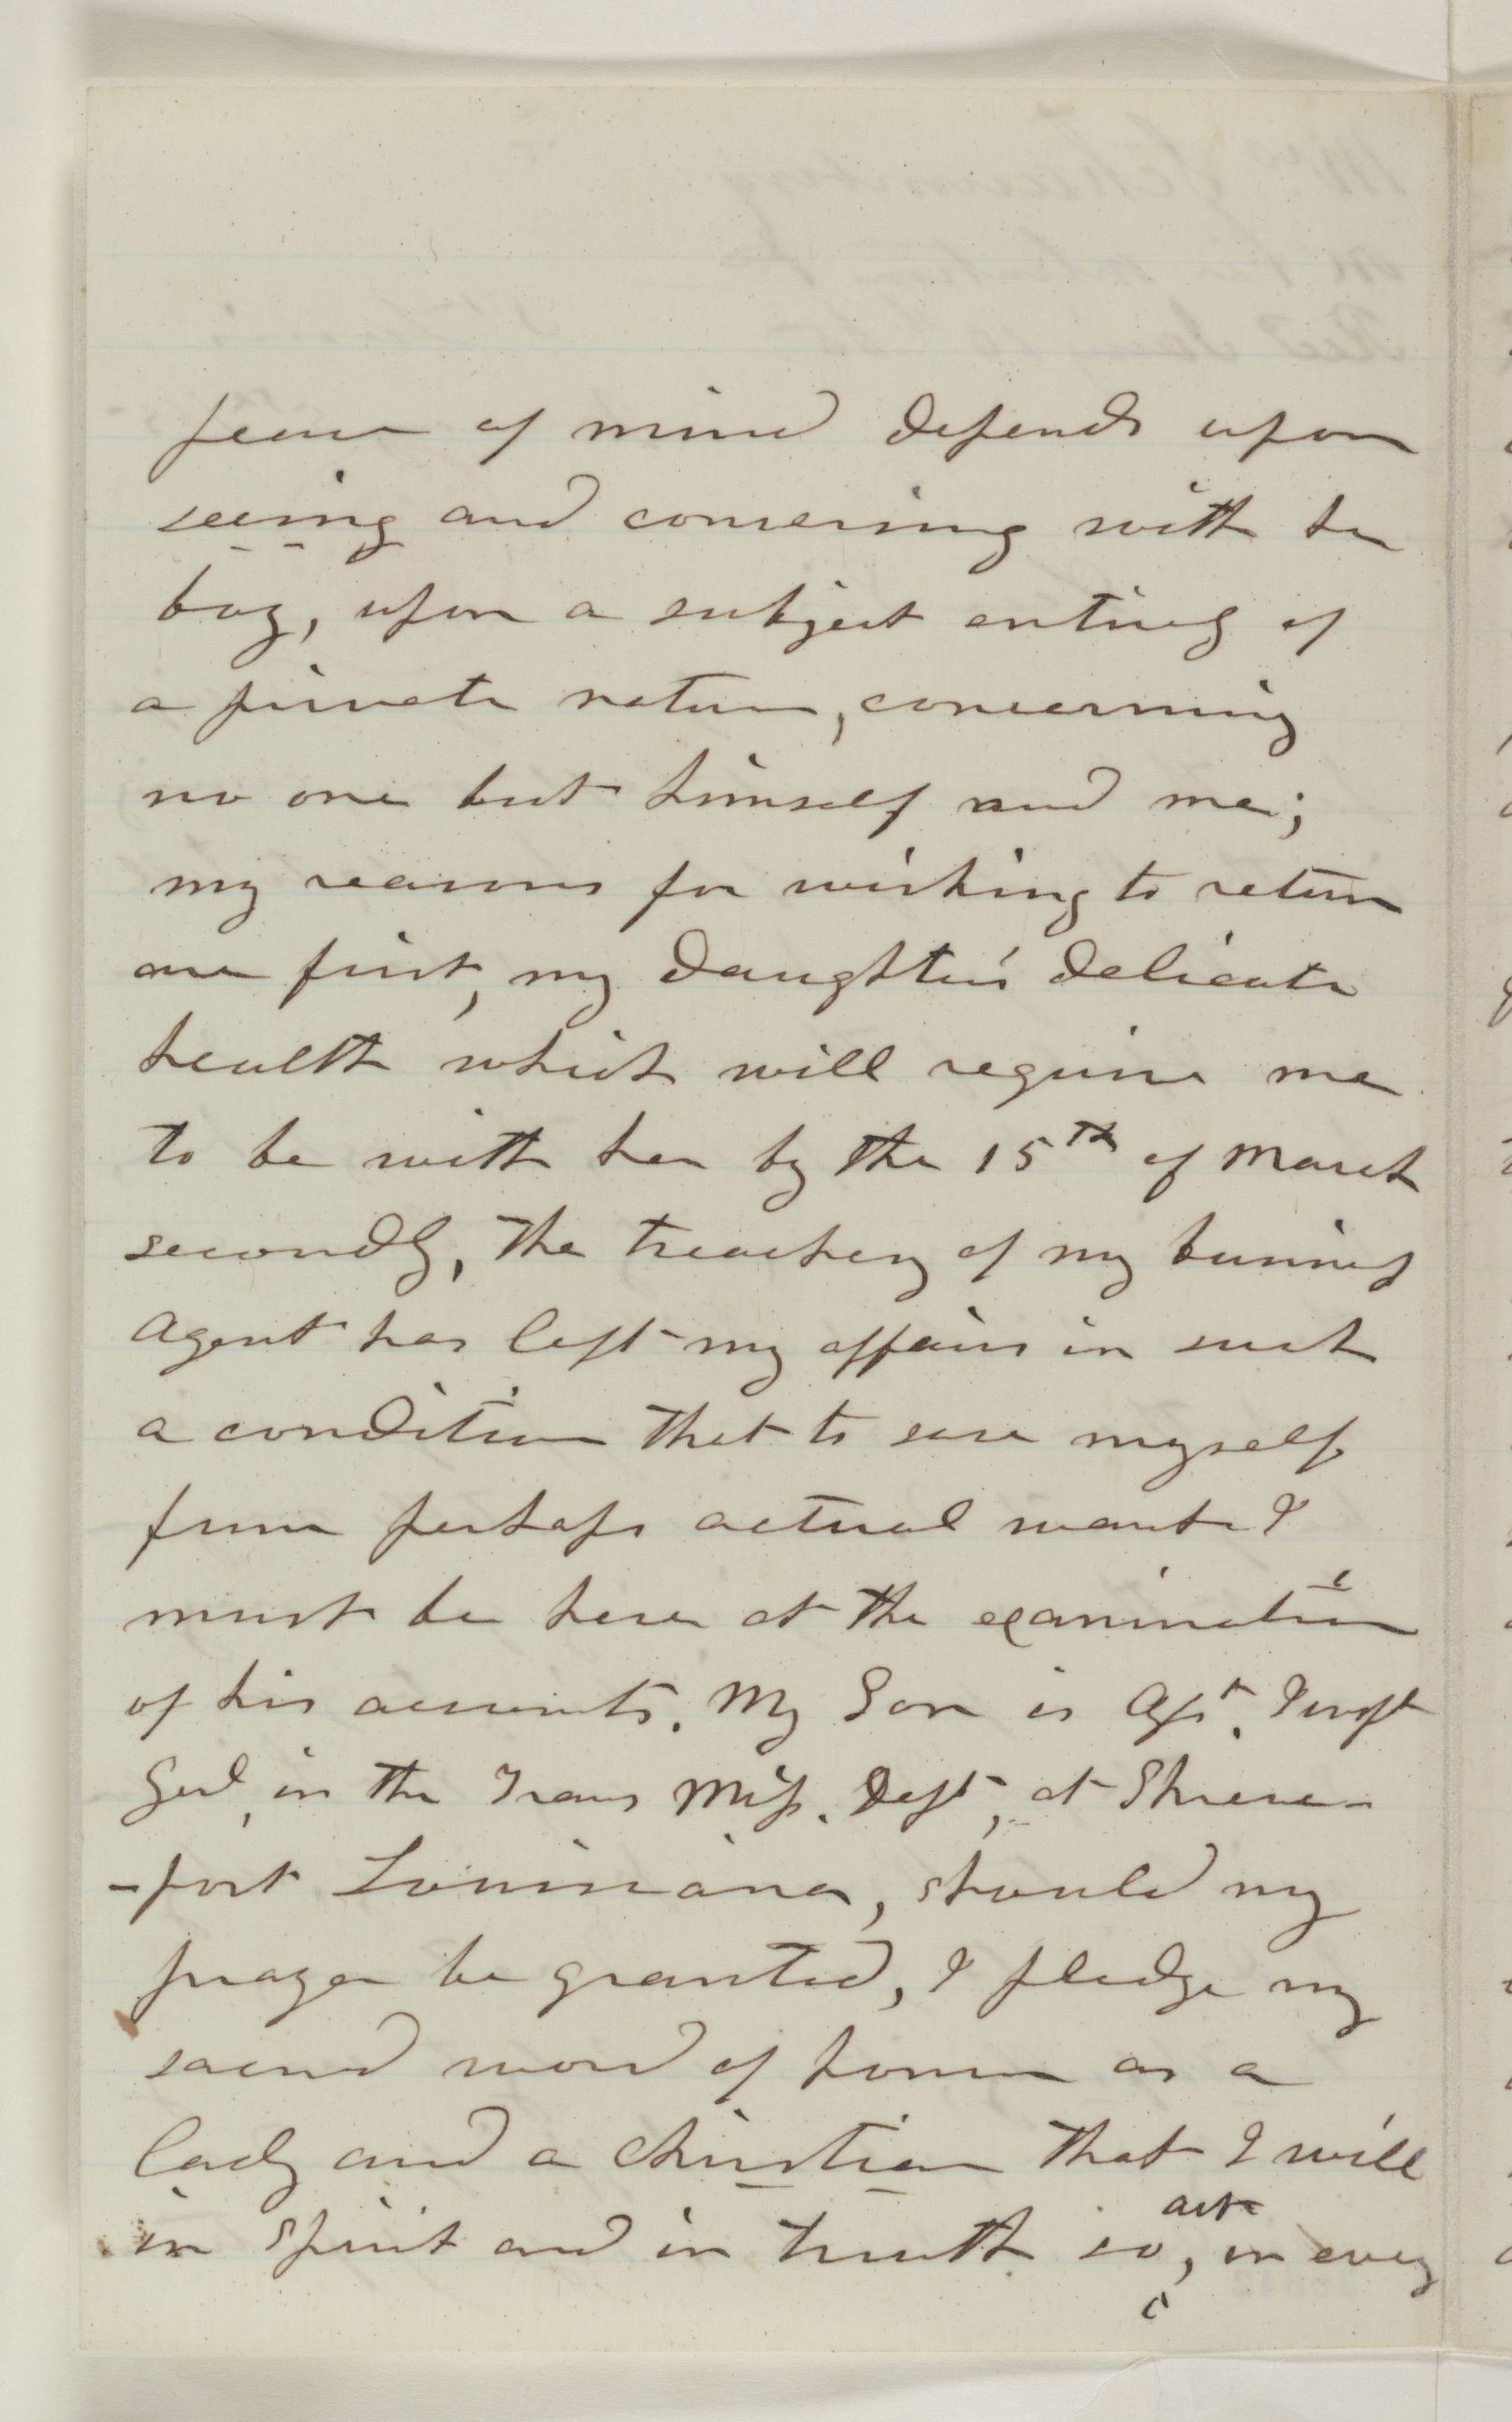 peace of mind depends upon
seeing and conversing with her
boy, upon a subject entirely of
a private nature, concerning
no one but himself and me;
my reasons for wishing to return
are first, my daughter's delicate
health which will require me
to be with her by the 15th of March
secondly, the treachery of my business
agent has left my affairs in such
a condition that to save myself
from perhaps actual want I
must be here at the examination
of his accounts. My Son is Asst. Inspt
Genl, in the Trans Miss. Dept, at Shreve-
-port Louisiana, should my
prayer be granted, I pledge my
sacred word of honor as a
lady and a christian that I will
in spirit and in truth so, act in every